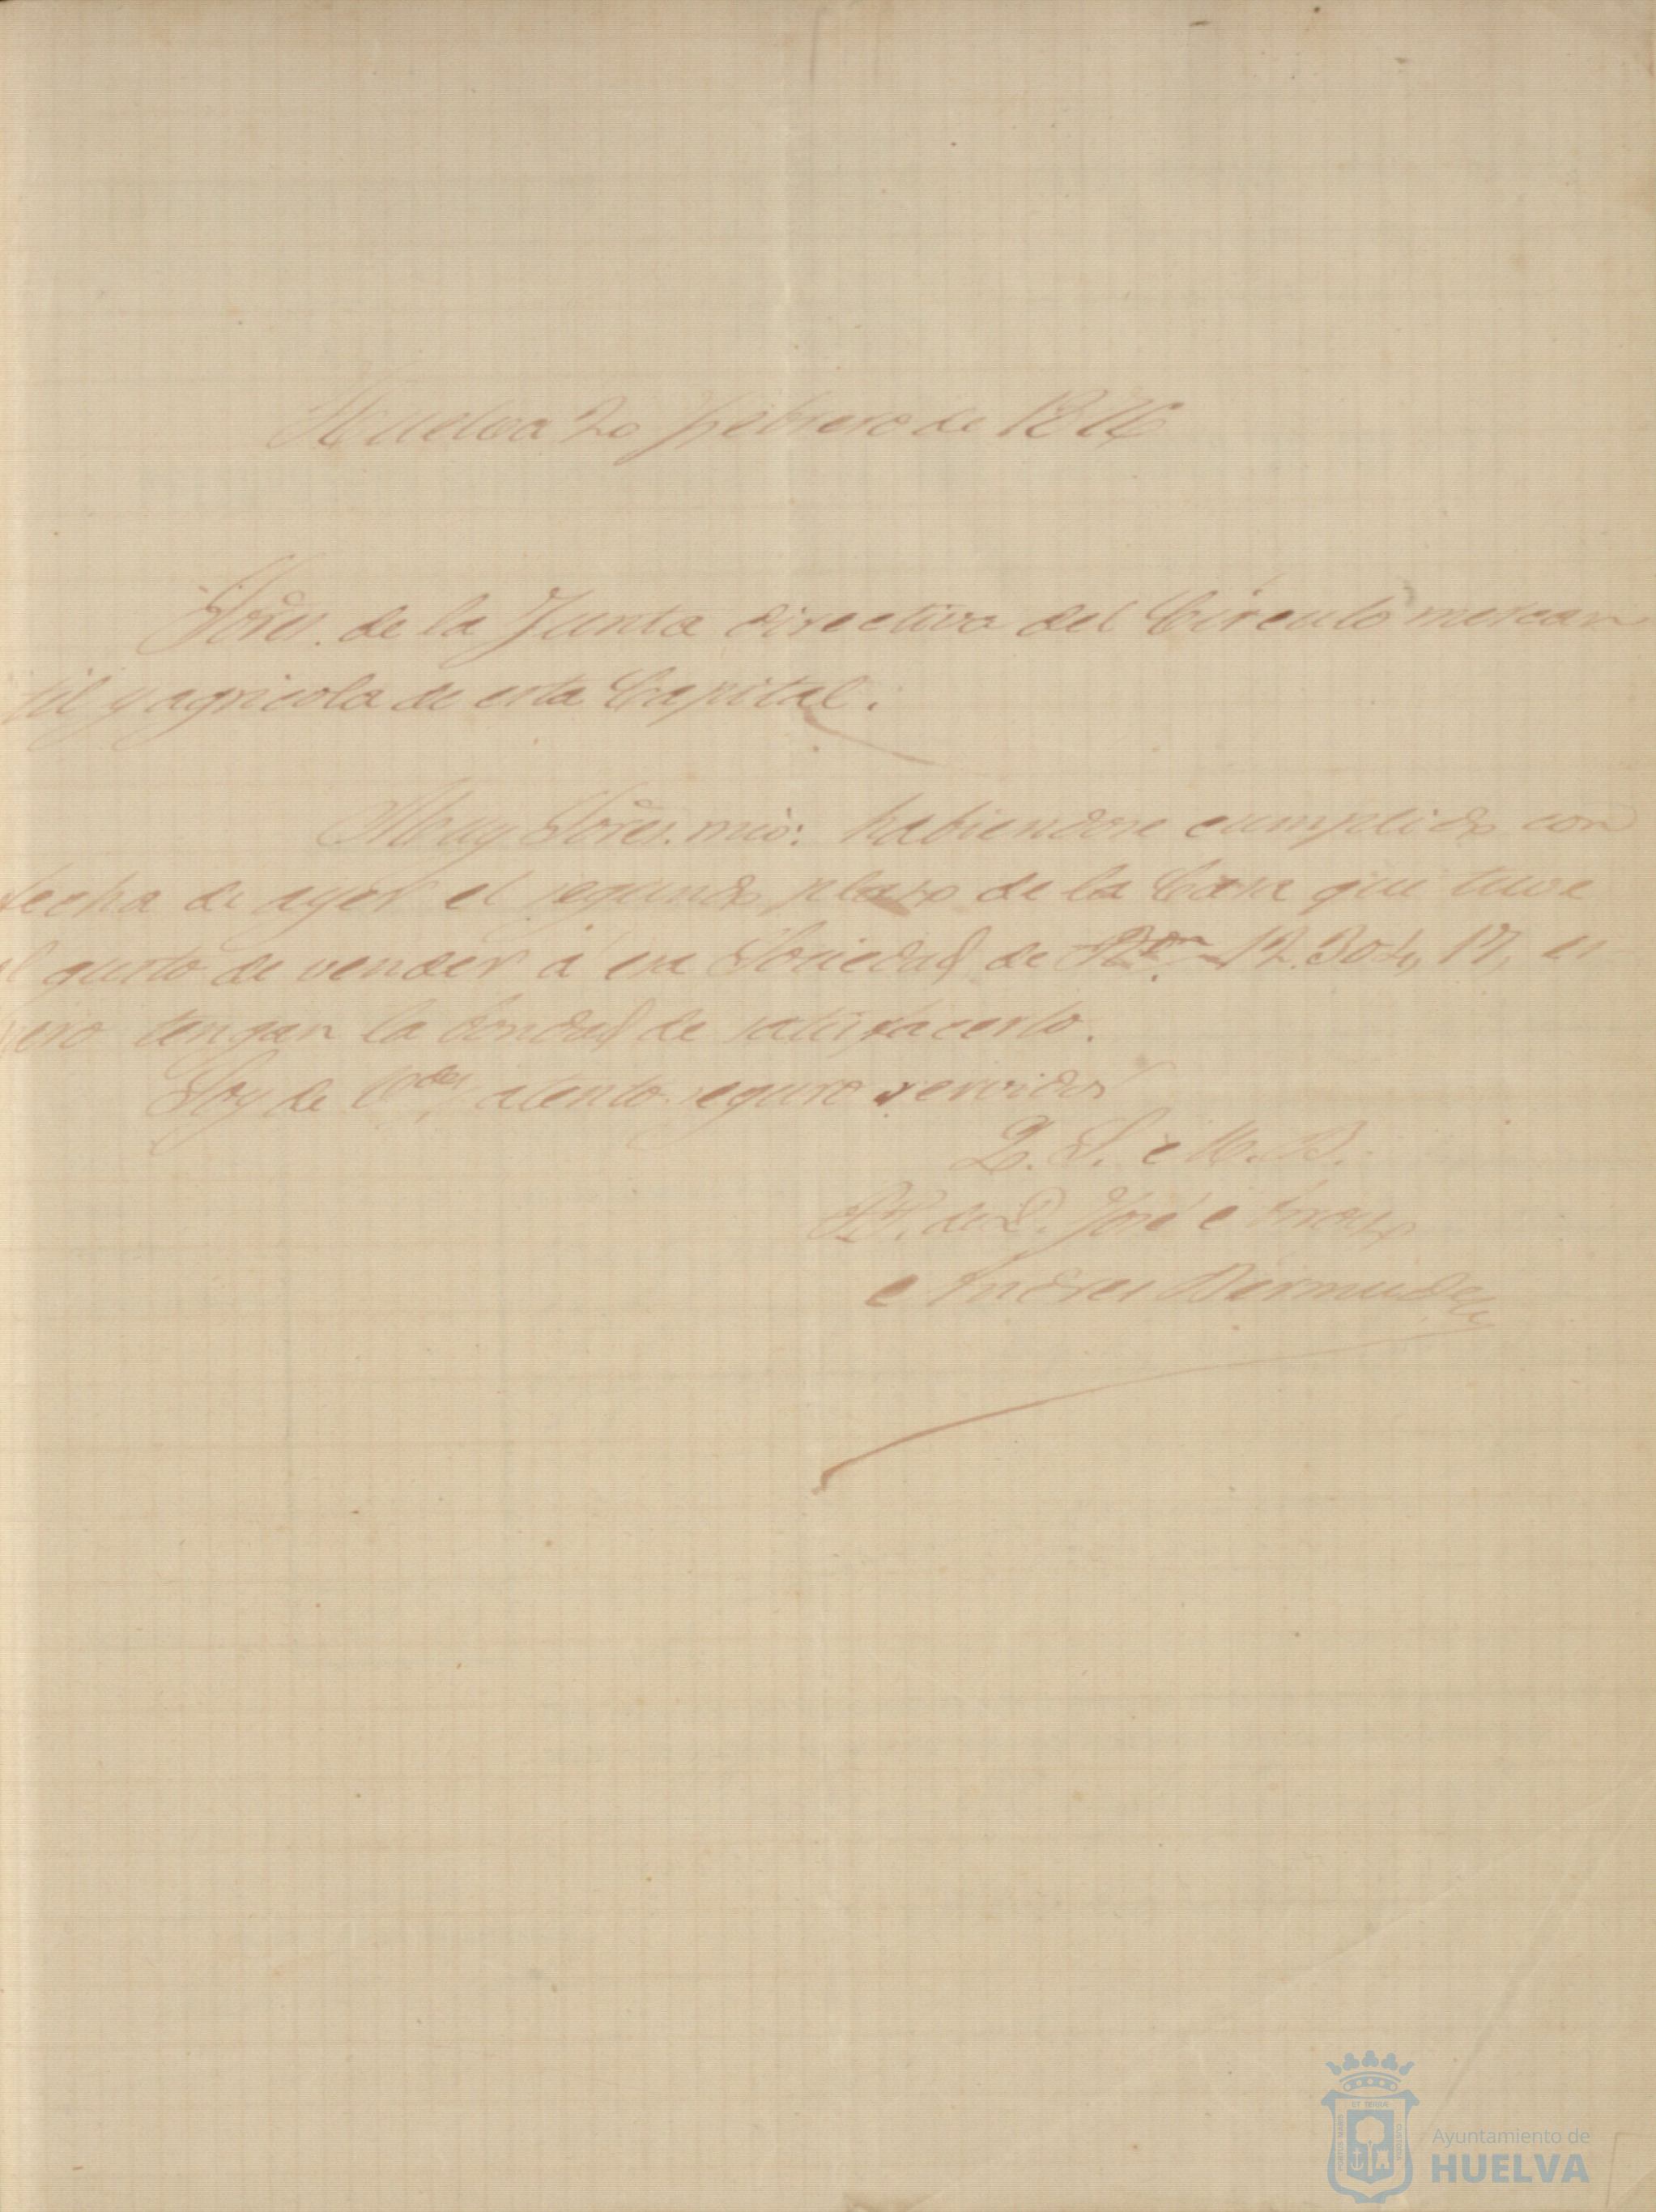 Huelva 20 febrero de 1876
Sres. de la Junta directiva del Círculo mercan
til y agricola de esta Capital.
Muy Sores. mios: habiendose cumplido con
fecha de ayer el segundo plazo de la Casa que tuve
el gusto de vender á esa Sociedad de Rvn 12.304,17, es
pero tengan la bondad de satisfacerlo.
Soy de Vdes atento seguro servidor
Q. S. M. B.
P. P. de D. José
Andres Bermudez
Ayuntamiento de
HUELVA